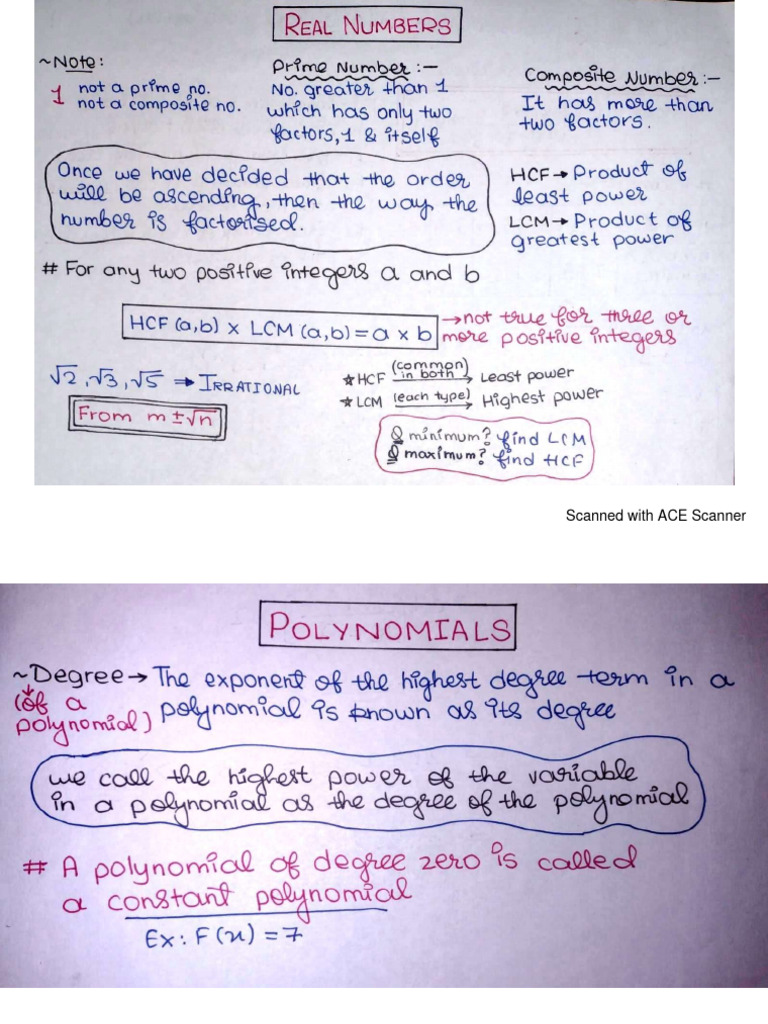 REAL NUMBERS
~Note:
1 not a prime no.
not a composite no.
Prime Number:-
No. greater than 1
which has only two
factors, 1 & itself
Composite Number:-
It has more than
two factors.
Once we have decided that the order
will be ascending, then the way the
number is factorised.
HCF → Product of
least power
LCM → Product of
greatest power
# For any two positive integers a and b
HCF (a,b) x LCM (a,b) = a x b
→ not true for three or
more positive integers
√2, √3, √5 ⇒ IRRATIONAL
From m ± √n
★ HCF (common in both) → Least power
★ LCM (each type) → Highest power
Q minimum? find LCM
Q maximum? find HCF
Scanned with ACE Scanner
POLYNOMIALS
~Degree → The exponent of the highest degree term in a
(of a polynomial) polynomial is known as its degree
we call the highest power of the variable
in a polynomial as the degree of the polynomial
# A polynomial of degree zero is called
a constant polynomial
Ex: F(x) = 7